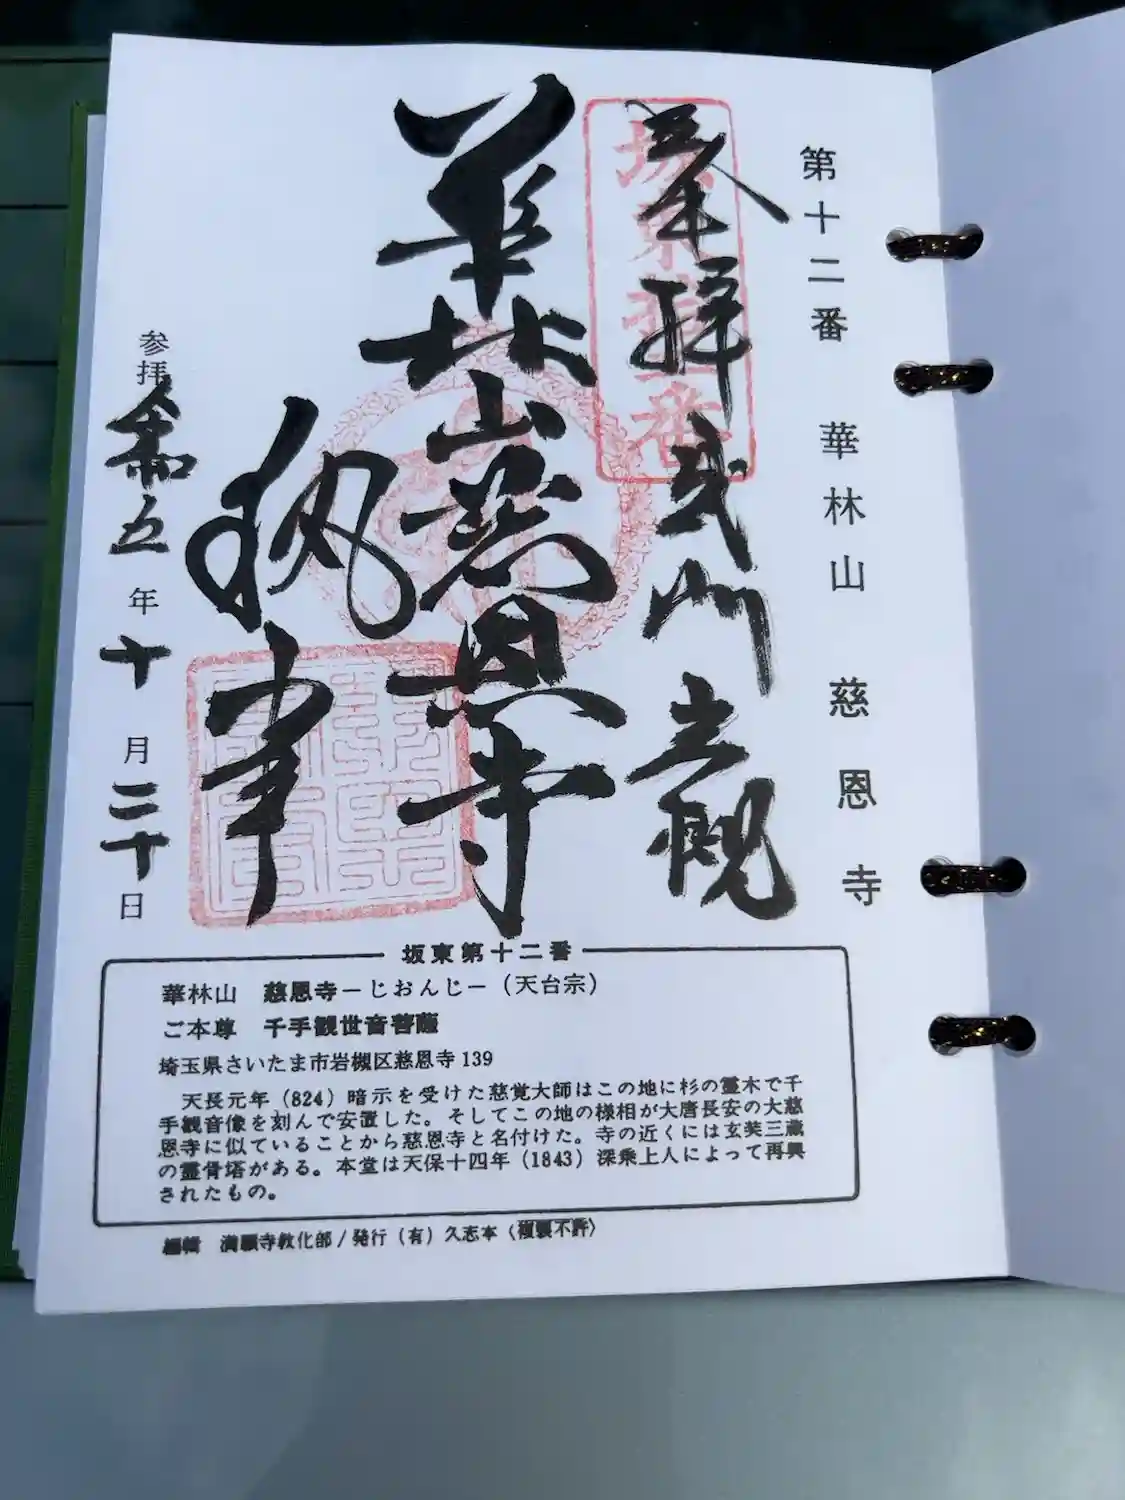 第十二番 華林山 慈恩寺
坂東拾二番
奉拝
華林山慈恩寺
納
参拝令和五年十月二十日
坂東第十二番
華林山 慈恩寺―じおんじ―（天台宗）
ご本尊 千手観世音菩薩
埼玉県さいたま市岩槻区慈恩寺139
天長元年（824）暗示を受けた慈覚大師はこの地に杉の霊木で千
手観音像を刻んで安置した。そしてこの地の様相が大唐長安の大慈
恩寺に似ていることから慈恩寺と名付けた。寺の近くには玄奘三蔵
の霊骨塔がある。本堂は天保十四年（1843）深乗上人によって再興
されたもの。
編輯 満願寺教化部／発行（有）久志本〈複製不許〉